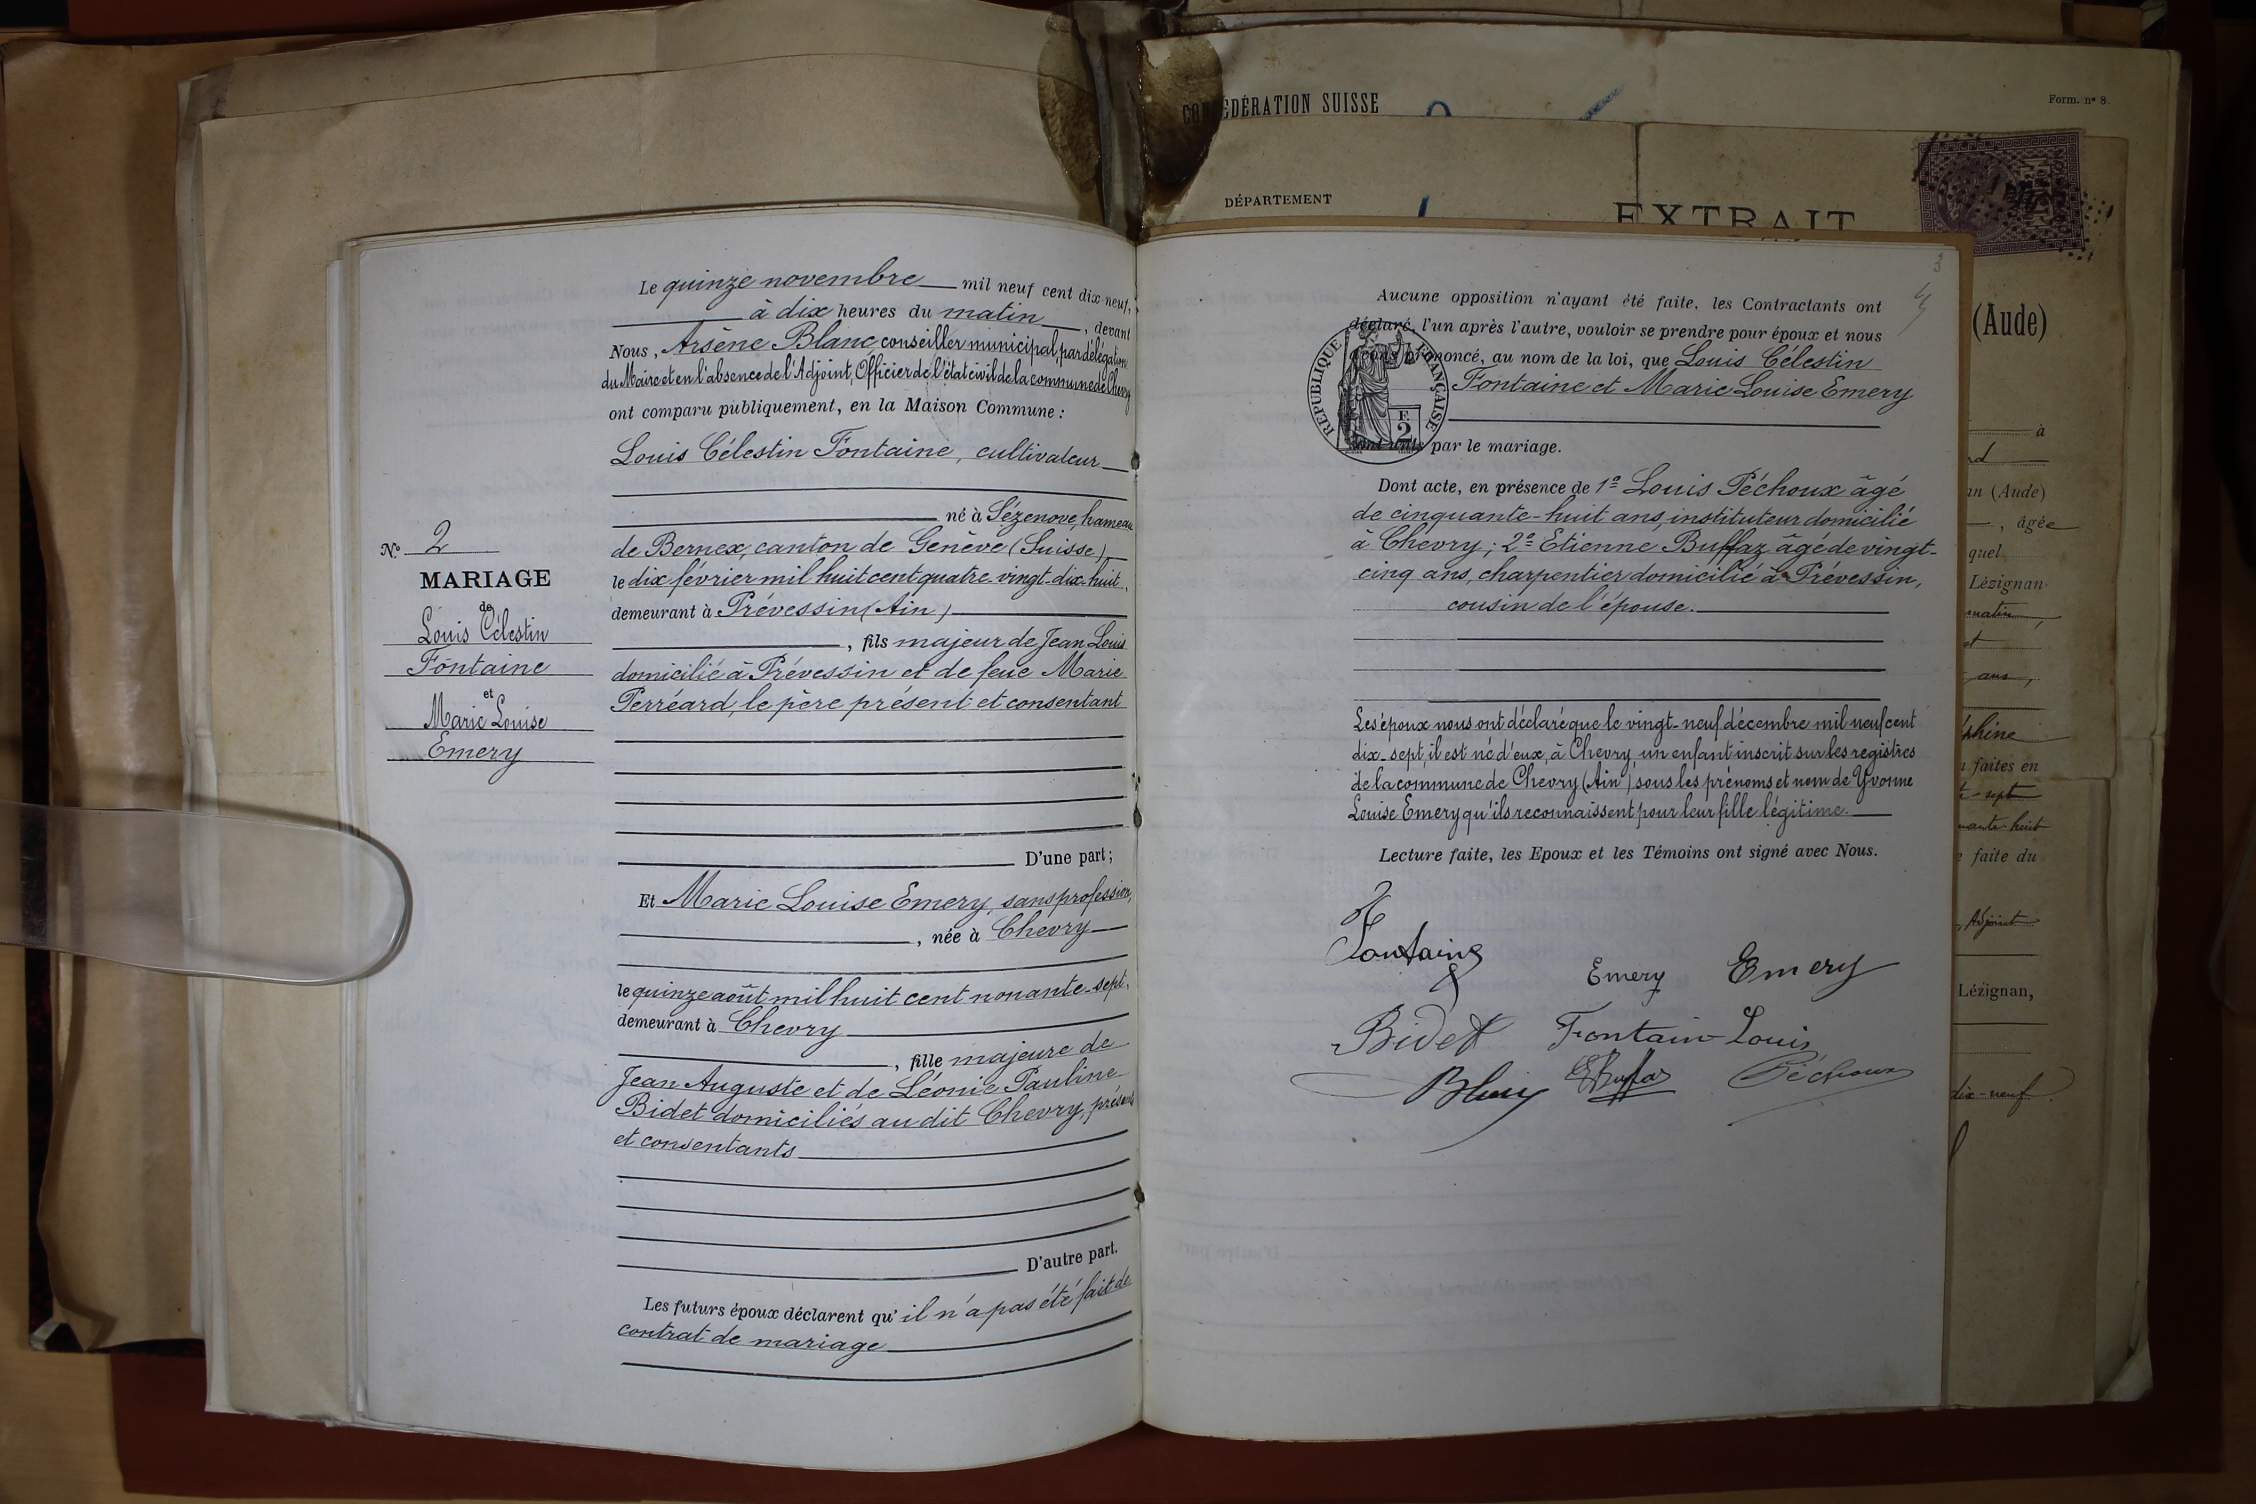 CONFÉDÉRATION SUISSE
Form. nº 8.
DÉPARTEMENT
EXTRAIT
(Aude)
Nº 2
MARIAGE
de
Louis Célestin
Fontaine
et
Marie Louise
Emery
Le quinze novembre mil neuf cent dix-neuf,
à dix heures du matin, devant
Nous, Arsène Blanc conseiller municipal, par délégation
du Maire et en l'absence de l'Adjoint, Officier de l'état civil de la commune de Chevry
ont comparu publiquement, en la Maison Commune :
Louis Célestin Fontaine, cultivateur
né à Sézenove, hameau
de Bernex, canton de Genève (Suisse)
le dix février mil huit cent quatre-vingt-dix-huit,
demeurant à Prévessin (Ain)
, fils majeur de Jean Louis
domicilié à Prévessin et de feue Marie
Perréard, le père présent et consentant
D'une part ;
Et Marie Louise Emery, sans profession,
, née à Chevry
le quinze août mil huit cent nonante-sept,
demeurant à Chevry
, fille majeure de
Jean Auguste et de Léonie Pauline
Bidet domiciliés au dit Chevry, présents
et consentants
D'autre part.
Les futurs époux déclarent qu'il n'a pas été fait de
contrat de mariage
3
Aucune opposition n'ayant été faite, les Contractants ont
déclaré, l'un après l'autre, vouloir se prendre pour époux et nous
avons prononcé, au nom de la loi, que Louis Célestin
Fontaine et Marie Louise Emery
sont unis par le mariage.
RÉPUBLIQUE FRANÇAISE
F.
2
Dont acte, en présence de 1º Louis Péchoux âgé
de cinquante-huit ans, instituteur domicilié
à Chevry ; 2º Etienne Buffaz âgé de vingt-
cinq ans, charpentier domicilié à Prévessin,
cousin de l'épouse.
Les époux nous ont déclaré que le vingt-neuf décembre mil neuf cent
dix-sept, il est né d'eux, à Chevry un enfant inscrit sur les registres
de la commune de Chevry (Ain) sous les prénoms et nom de Yvonne
Louise Emery qu'ils reconnaissent pour leur fille légitime.
Lecture faite, les Epoux et les Témoins ont signé avec Nous.
Fontaine
Emery Emery
Bidet Fontain Louis
E Buffaz Péchoux
à
(Aude)
, âgée
quel
Lézignan
matin,
et
ans,
faites en
sept
faite du
Adjoint
Lézignan,
dix-neuf